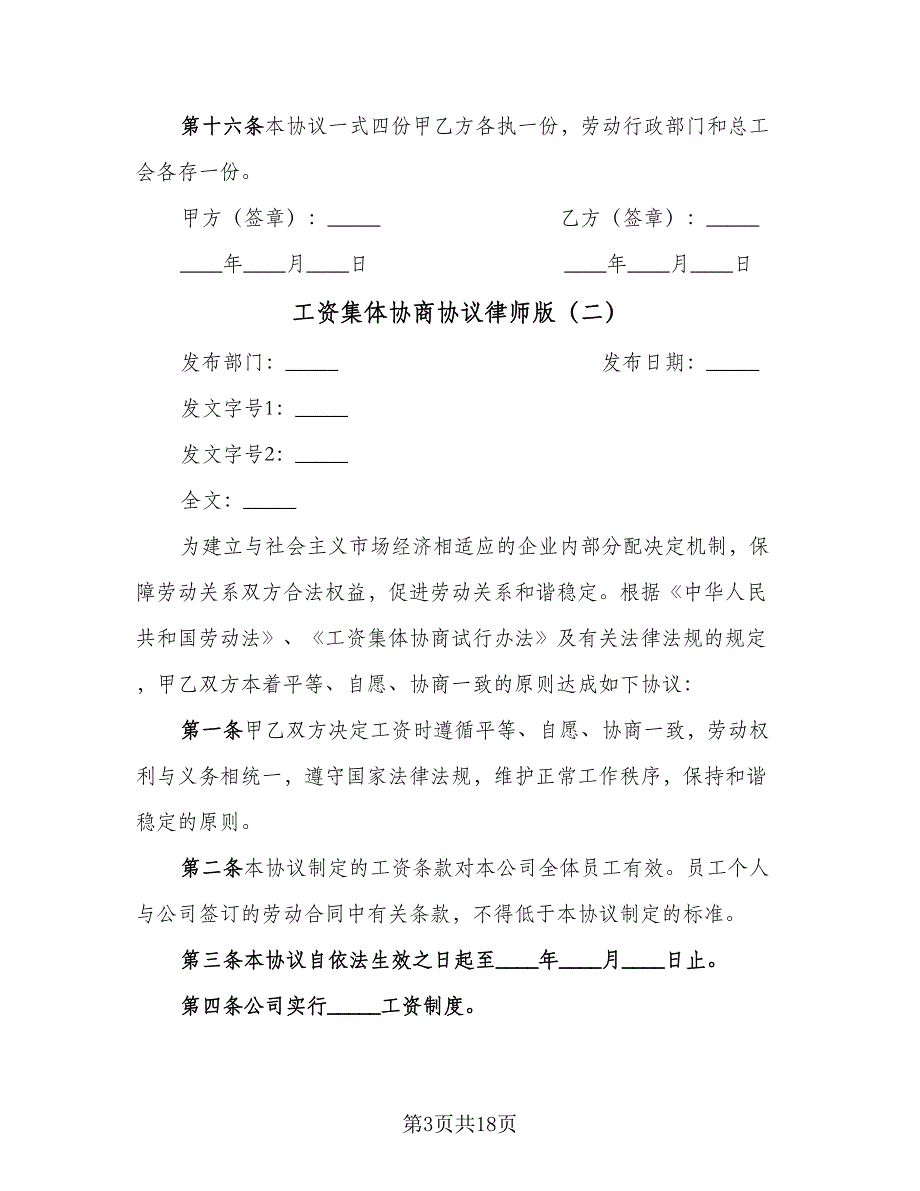 第十六条本协议一式四份甲乙方各执一份，劳动行政部门和总工
会各存一份。
甲方（签章）：_____ 乙方（签章）：_____
____年____月____日 ____年____月____日
工资集体协商协议律师版（二）
发布部门：_____ 发布日期：_____
发文字号1：_____
发文字号2：_____
全文：_____
为建立与社会主义市场经济相适应的企业内部分配决定机制，保
障劳动关系双方合法权益，促进劳动关系和谐稳定。根据《中华人民
共和国劳动法》、《工资集体协商试行办法》及有关法律法规的规定
，甲乙双方本着平等、自愿、协商一致的原则达成如下协议：
第一条甲乙双方决定工资时遵循平等、自愿、协商一致，劳动权
利与义务相统一，遵守国家法律法规，维护正常工作秩序，保持和谐
稳定的原则。
第二条本协议制定的工资条款对本公司全体员工有效。员工个人
与公司签订的劳动合同中有关条款，不得低于本协议制定的标准。
第三条本协议自依法生效之日起至____年____月____日止。
第四条公司实行_____工资制度。
第3页共18页